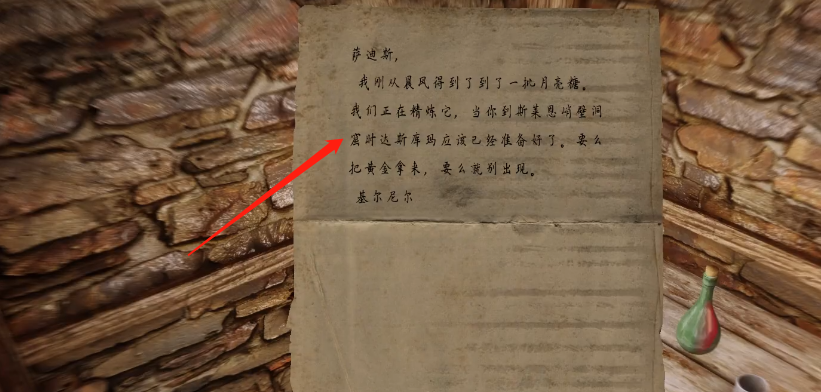 萨迪斯,
我刚从晨风得到了到了一批月亮糖。
我们正在精炼它, 当你到斯莱恩峭壁洞
窟时达斯库玛应该已经准备好了。要么
把黄金拿来, 要么就别出现。
基尔尼尔